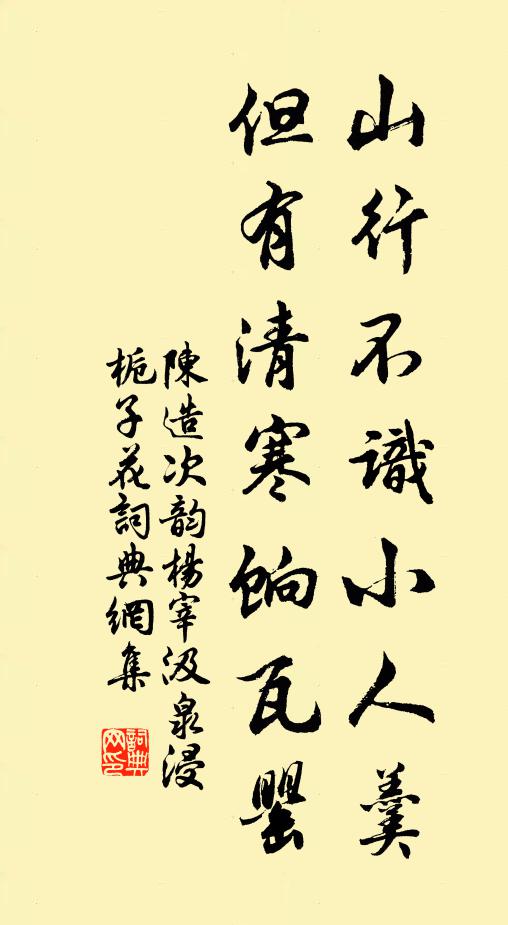 山行不識小人羹
但有清寒餉瓦罌
陳造次韵楊宰汲泉浸
栀子花詞典網集
詞典网印